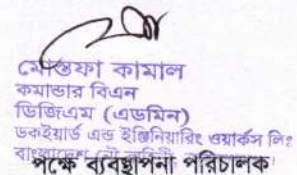 মোস্তফা কামাল
কমান্ডার বিএন
ডিজিএম (এডমিন)
ডকইয়ার্ড এন্ড ইঞ্জিনিয়ারিং ওয়ার্কস লিঃ
বাংলাদেশ
পক্ষে ব্যবস্থাপনা পরিচালক